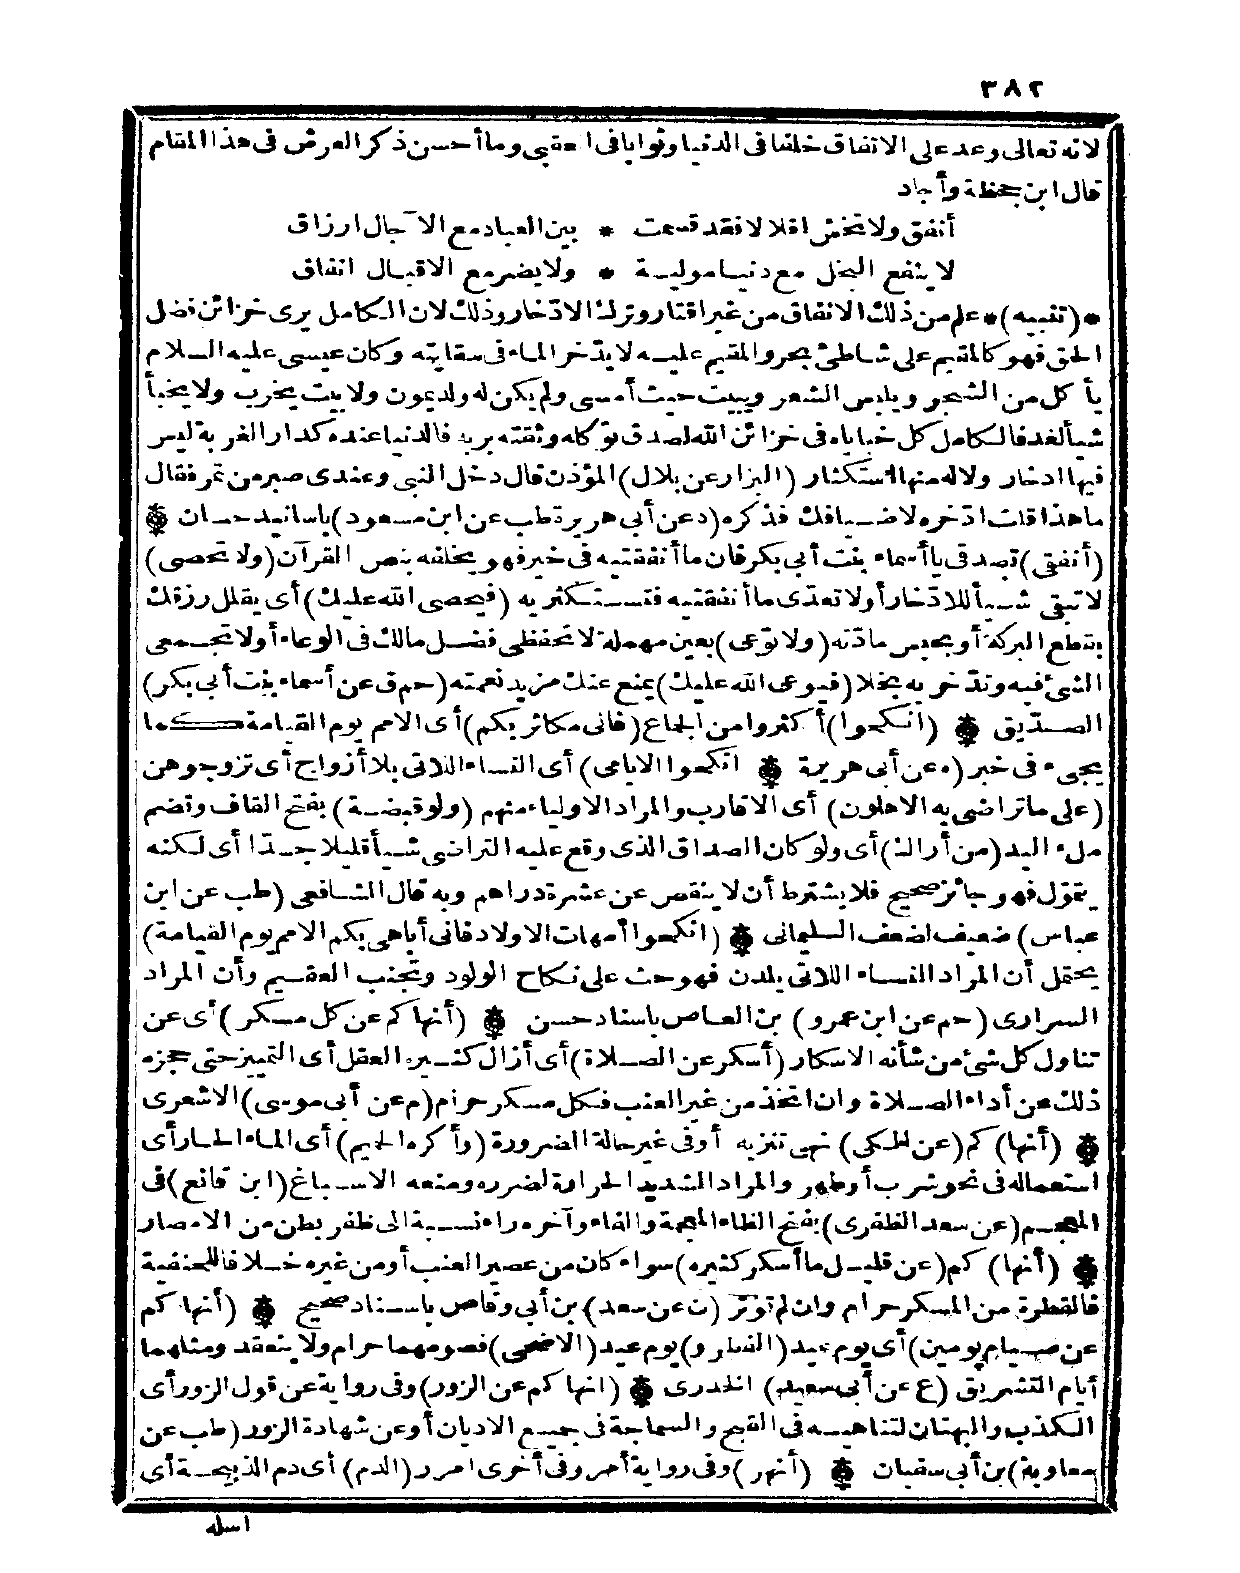 ٣٨٢
لانه تعالى وعد على الانفاق خلفا فى الدنيا وثوابا فى العقبى وما أحسن ذكر العرش فى هذا المقام
قال ابن جحظة وأجاد
أنفق ولا تخش اقلالا فقد قسمت * بين العباد مع الآجال ارزاق
لا ينفع البخل مع دنيا مولية * ولا يضر مع الاقبال انفاق
*(تنبيه)* علم من ذلك الانفاق من غير اقتار وترك الادّخار وذلك لان الكامل يرى خزائن فضل
الحق فهو كالمقيم على شاطئ بحر والمقيم عليه لا يدّخر الماء فى سقايته وكان عيسى عليه السلام
يأكل من الشجر ويلبس الشعر ويبيت حيث أمسى ولم يكن له ولد يموت ولا بيت يخرب ولا يخبأ
شيأ لغد فالكامل كل خباياه فى خزائن الله لصدق توكله وثقته بربه فالدنيا عنده كدار الغربة ليس
فيها ادخار ولا له منها استكثار (البزار عن بلال) المؤذن قال دخل النبى وعندى صبر من تمر فقال
ما هذا قلت ادّخره لاضيافك فذكره (د عن أبى هريرة طب عن ابن مسعود) باسانيد حسان
(أنفقى) تصدقى يا أسماء بنت أبى بكر فان ما أنفقتيه فى خير فهو يخلفه بنص القرآن (ولا تحصى)
لا تبقى شيأ للادّخار أو لا تعدّى ما أنفقتيه فتستكثريه (فيحصى الله عليك) أى يقلل رزقك
بقطع البركة أو بحبس مادّته (ولا توعى) بعين مهملة لا تحفظى فضل مالك فى الوعاء أو لا تجمعى
الشئ فيه وتدّخريه بخلا (فيوعى الله عليك) يمنع عنك مزيد نعمته (حم ق عن أسماء بنت أبى بكر)
الصدّيق (انكحوا) أكثروا من الجماع (فانى مكاثر بكم) أى الامم يوم القيامة كما
يجىء فى خبر (ه عن أبى هريرة انكحوا الايامى) أى النساء اللاتى بلا أزواج أى تزوجوهن
(على ما تراضى به الاهلون) أى الاقارب والمراد الاولياء منهم (ولو قبضة) بفتح القاف وتضم
ملء اليد (من أراك) أى ولو كان الصداق الذى وقع عليه التراضى شيأ قليلا جدّا أى لكنه
يتمول فهو جائز صحيح فلا يشترط أن لا ينقص عن عشرة دراهم وبه قال الشافعى (طب عن ابن
عباس) ضعيف لضعف السليمانى (انكحوا أمهات الاولاد فانى أباهى بكم الامم يوم القيامة)
يحتمل أن المراد النساء اللاتى يلدن فهو حث على نكاح الولود وتجنب العقيم وأن المراد
السرارى (حم عن ابن عمرو) بن العاص باسناد حسن (أنهاكم عن كل مسكر) أى عن
تناول كل شئ من شأنه الاسكار (أسكر عن الصلاة) أى أزال كثيره العقل أى التمييز حتى حجزه
ذلك عن أداء الصلاة وان اتخذ من غير العنب فكل مسكر حرام (م عن أبى موسى) الاشعرى
(أنها) كم (عن الكى) نهى تنزيه أو فى غير حالة الضرورة (وأكره الحميم) أى الماء الحار أى
استعماله فى نحو شرب أو طهر والمراد الشديد الحرارة لضرره ومنعه الاسباغ (ابن قانع) فى
المعجم (عن سعد الظفرى) بفتح الظاء المعجمة والفاء وآخره راء نسبة الى ظفر بطن من الانصار
(أنها) كم (عن قليل ما أسكر كثيره) سواء كان من عصير العنب أو من غيره خلافا للحنفية
فالقطرة من المسكر حرام وان لم تؤثر (ن عن سعد) بن أبى وقاص باسناد صحيح (أنهاكم
عن صيام يومين) أى يوم عيد (الفطر و) يوم عيد (الاضحى) فصومهما حرام ولا ينعقد ومثلهما
أيام التشريق (ع عن أبى سعيد) الخدرى (انهاكم عن الزور) وفى رواية عن قول الزور أى
الكذب والبهتان لتناهيه فى القبح والسماجة فى جميع الاديان أو عن شهادة الزور (طب عن
معاوية) بن أبى سفيان (أنهر) وفى رواية أمر وفى أخرى امرر (الدم) أى دم الذبيحة أى
اسله